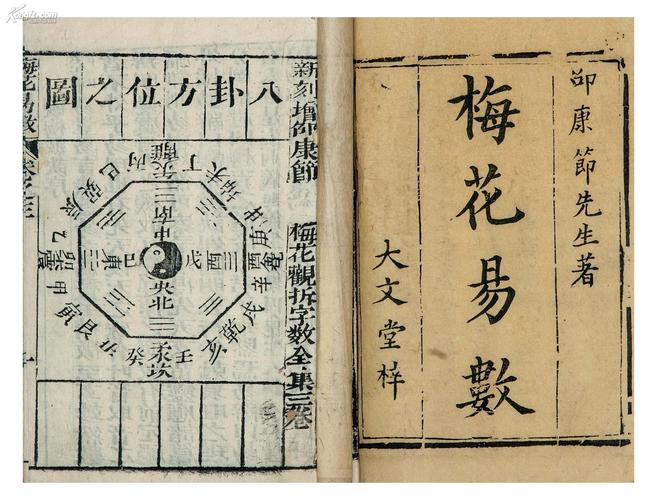 卲康節先生著
梅花易數
大文堂梓
新刻增卲康節
梅花觀折字數全集三卷
八卦方位之圖
丙午離丁未坤申庚
酉兌辛戌乾亥
壬子坎癸丑艮寅
甲卯震乙辰巽巳
南中
東巳戊酉
央北
梅花易数
卷之三